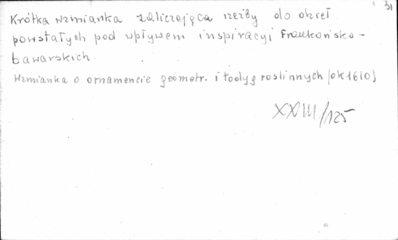 Krótka wzmianka zaliczająca rzeźby do dzieł
powstałych pod wpływem inspiracyi Frankońsko-
bawarskich.
Wzmianka o ornamencie geometr. i łodyg roślinnych (ok 1610)
XXIII/125